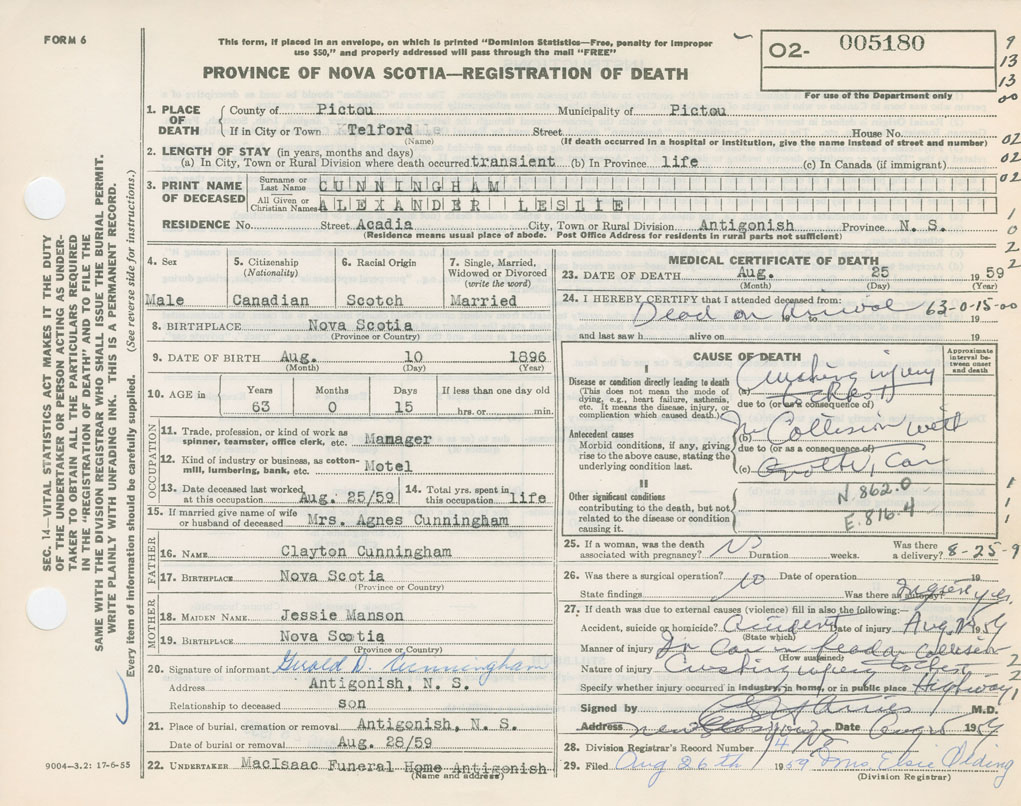 FORM 6
This form, if placed in an envelope, on which is printed "Dominion Statistics—Free, penalty for improper
use $50," and properly addressed will pass through the mail "FREE"
PROVINCE OF NOVA SCOTIA—REGISTRATION OF DEATH
O2- 005180
For use of the Department only
9
13
13
00
02
02
02
1
0
2
2
SEC. 14—VITAL STATISTICS ACT MAKES IT THE DUTY
OF THE UNDERTAKER OR PERSON ACTING AS UNDER-
TAKER TO OBTAIN ALL THE PARTICULARS REQUIRED
IN THE "REGISTRATION OF DEATH" AND TO FILE THE
SAME WITH THE DIVISION REGISTRAR WHO SHALL ISSUE THE BURIAL PERMIT.
WRITE PLAINLY WITH UNFADING INK. THIS IS A PERMANENT RECORD.
Every item of information should be carefully supplied. (See reverse side for instructions.)
1. PLACE OF DEATH
County of Pictou Municipality of Pictou
If in City or Town Telford Street House No.
(Name) (If death occurred in a hospital or institution, give the name instead of street and number)
2. LENGTH OF STAY (in years, months and days)
(a) In City, Town or Rural Division where death occurred transient (b) In Province life (c) In Canada (if immigrant)
3. PRINT NAME OF DECEASED
Surname or Last Name CUNNINGHAM
All Given or Christian Names ALEXANDER LESLIE
RESIDENCE No. Street Acadia City, Town or Rural Division Antigonish Province N. S.
(Residence means usual place of abode. Post Office Address for residents in rural parts not sufficient)
4. Sex
Male
5. Citizenship
(Nationality)
Canadian
6. Racial Origin
Scotch
7. Single, Married,
Widowed or Divorced
(write the word)
Married
8. BIRTHPLACE Nova Scotia
(Province or Country)
9. DATE OF BIRTH Aug. 10 1896
(Month) (Day) (Year)
10. AGE in
Years Months Days If less than one day old
63 0 15 hrs. or min.
OCCUPATION
11. Trade, profession, or kind of work as
spinner, teamster, office clerk, etc. Manager
12. Kind of industry or business, as cotton-
mill, lumbering, bank, etc. Motel
13. Date deceased last worked
at this occupation Aug. 25/59
14. Total yrs. spent in
this occupation life
15. If married give name of wife
or husband of deceased Mrs. Agnes Cunningham
FATHER
16. NAME Clayton Cunningham
17. BIRTHPLACE Nova Scotia
(Province or Country)
MOTHER
18. MAIDEN NAME Jessie Manson
19. BIRTHPLACE Nova Scotia
(Province or Country)
20. Signature of informant Gerald D. Cunningham
Address Antigonish, N. S.
Relationship to deceased son
21. Place of burial, cremation or removal Antigonish, N. S.
Date of burial or removal Aug. 28/59
22. UNDERTAKER MacIsaac Funeral Home Antigonish
(Name and address)
9004—3.2: 17-6-55
MEDICAL CERTIFICATE OF DEATH
23. DATE OF DEATH Aug. 25 1959
(Month) (Day) (Year)
24. I HEREBY CERTIFY that I attended deceased from:
Dead on Arrival 63-0-15-00
to 19
and last saw h alive on 19
CAUSE OF DEATH
Approximate interval between onset and death
I
Disease or condition directly leading to death
(This does not mean the mode of
dying, e.g., heart failure, asthenia,
etc. It means the disease, injury, or
complication which caused death.)
(a) Crushing injury
to chest
due to (or as a consequence of)
Antecedent causes
Morbid conditions, if any, giving
rise to the above cause, stating the
underlying condition last.
(b) In Collision with
due to (or as a consequence of)
(c) Another Car
II
Other significant conditions
contributing to the death, but not
related to the disease or condition
causing it.
N.862.0
E.816.4
1
1
1
25. If a woman, was the death
associated with pregnancy? No Duration weeks. Was there
a delivery? 8-25-9
26. Was there a surgical operation? No Date of operation 19
State findings Was there an autopsy? yes
27. If death was due to external causes (violence) fill in also the following:—
Accident, suicide or homicide? Accident Date of injury Aug 1959
(State which)
Manner of injury In Car in head on Collision
(How sustained)
Nature of injury Crushing injury to chest
Specify whether injury occurred in industry, in home, or in public place Highway
2
2
1
Signed by M.D.
Address New Glasgow Date Aug 1959
28. Division Registrar's Record Number
29. Filed Aug 26th 1959 Mrs Elsie Olding
(Division Registrar)